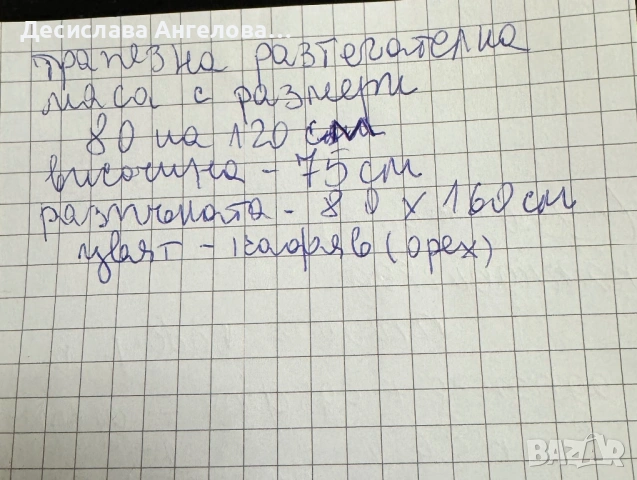 Десислава Ангелова...
трапезна разтегателна
маса с размери
80 на 120 см
височина - 75 см
разпъната - 80 х 160 см
цвят - кафяв (орех)
BAZAR